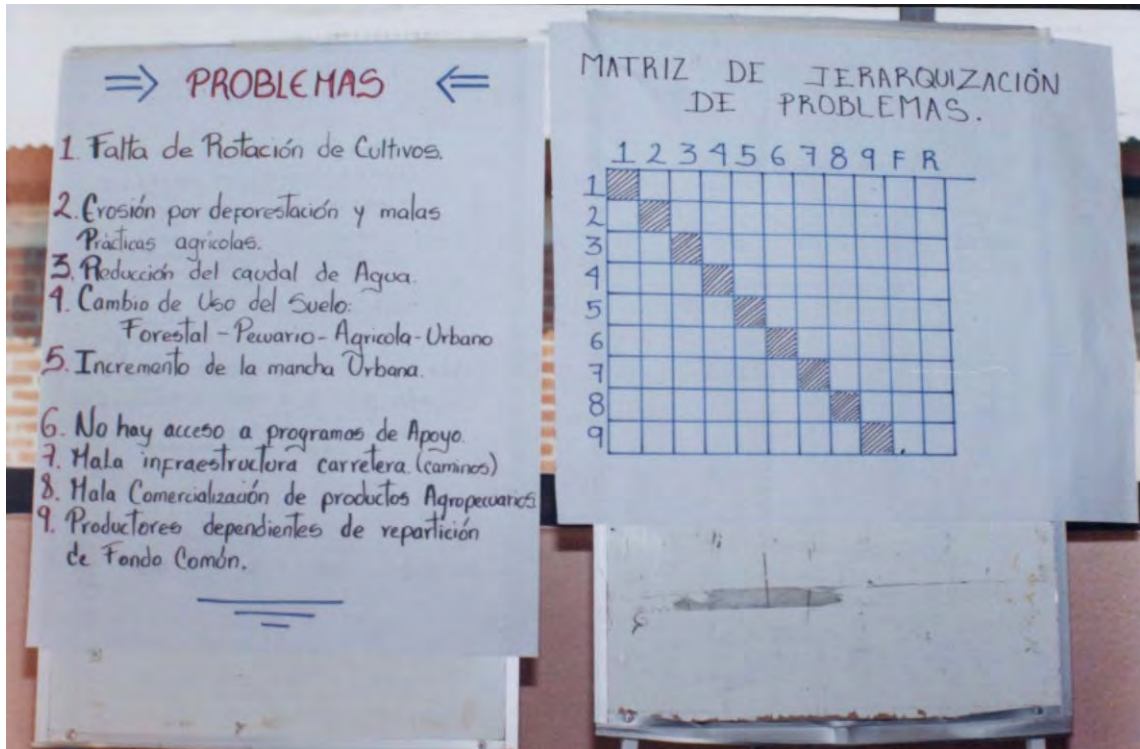 ⇒ PROBLEMAS ⇐
1. Falta de Rotación de Cultivos.
2. Erosión por deforestación y malas
Prácticas agrícolas.
3. Reducción del caudal de Agua.
4. Cambio de Uso del Suelo:
Forestal - Pecuario - Agricola - Urbano
5. Incremento de la mancha Urbana.
6. No hay acceso a programas de Apoyo.
7. Mala infraestructura carretera (caminos)
8. Mala Comercialización de productos Agropecuarios
9. Productores dependientes de repartición
de Fondo Común.
MATRIZ DE JERARQUIZACIÓN
DE PROBLEMAS.
1 2 3 4 5 6 7 8 9 F R
1
2
3
4
5
6
7
8
9